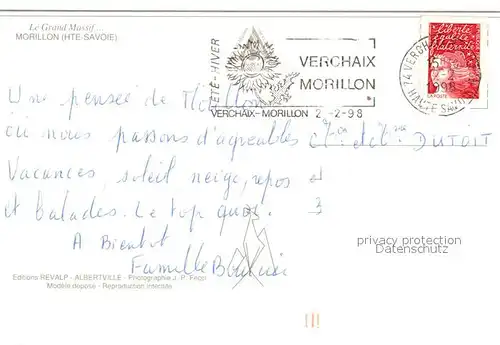 Le Grand Massif ...
MORILLON (HTE-SAVOIE)
ÉTÉ-HIVER
VERCHAIX
MORILLON
VERCHAIX-MORILLON 2 -2-98
74 VERCH
1998
HAUTE SAV
liberté
égalité
fraternité
LA POSTE
Une pensée de Morillon
où nous passons d'agréables
DUTOIT
Vacances, soleil neige, repos
et balades. Le top quoi.
A Bientôt
Famille
privacy protection
Datenschutz
Editions REVALP - ALBERTVILLE - Photographie J. P. Fepp
Modèle déposé - Reproduction interdite